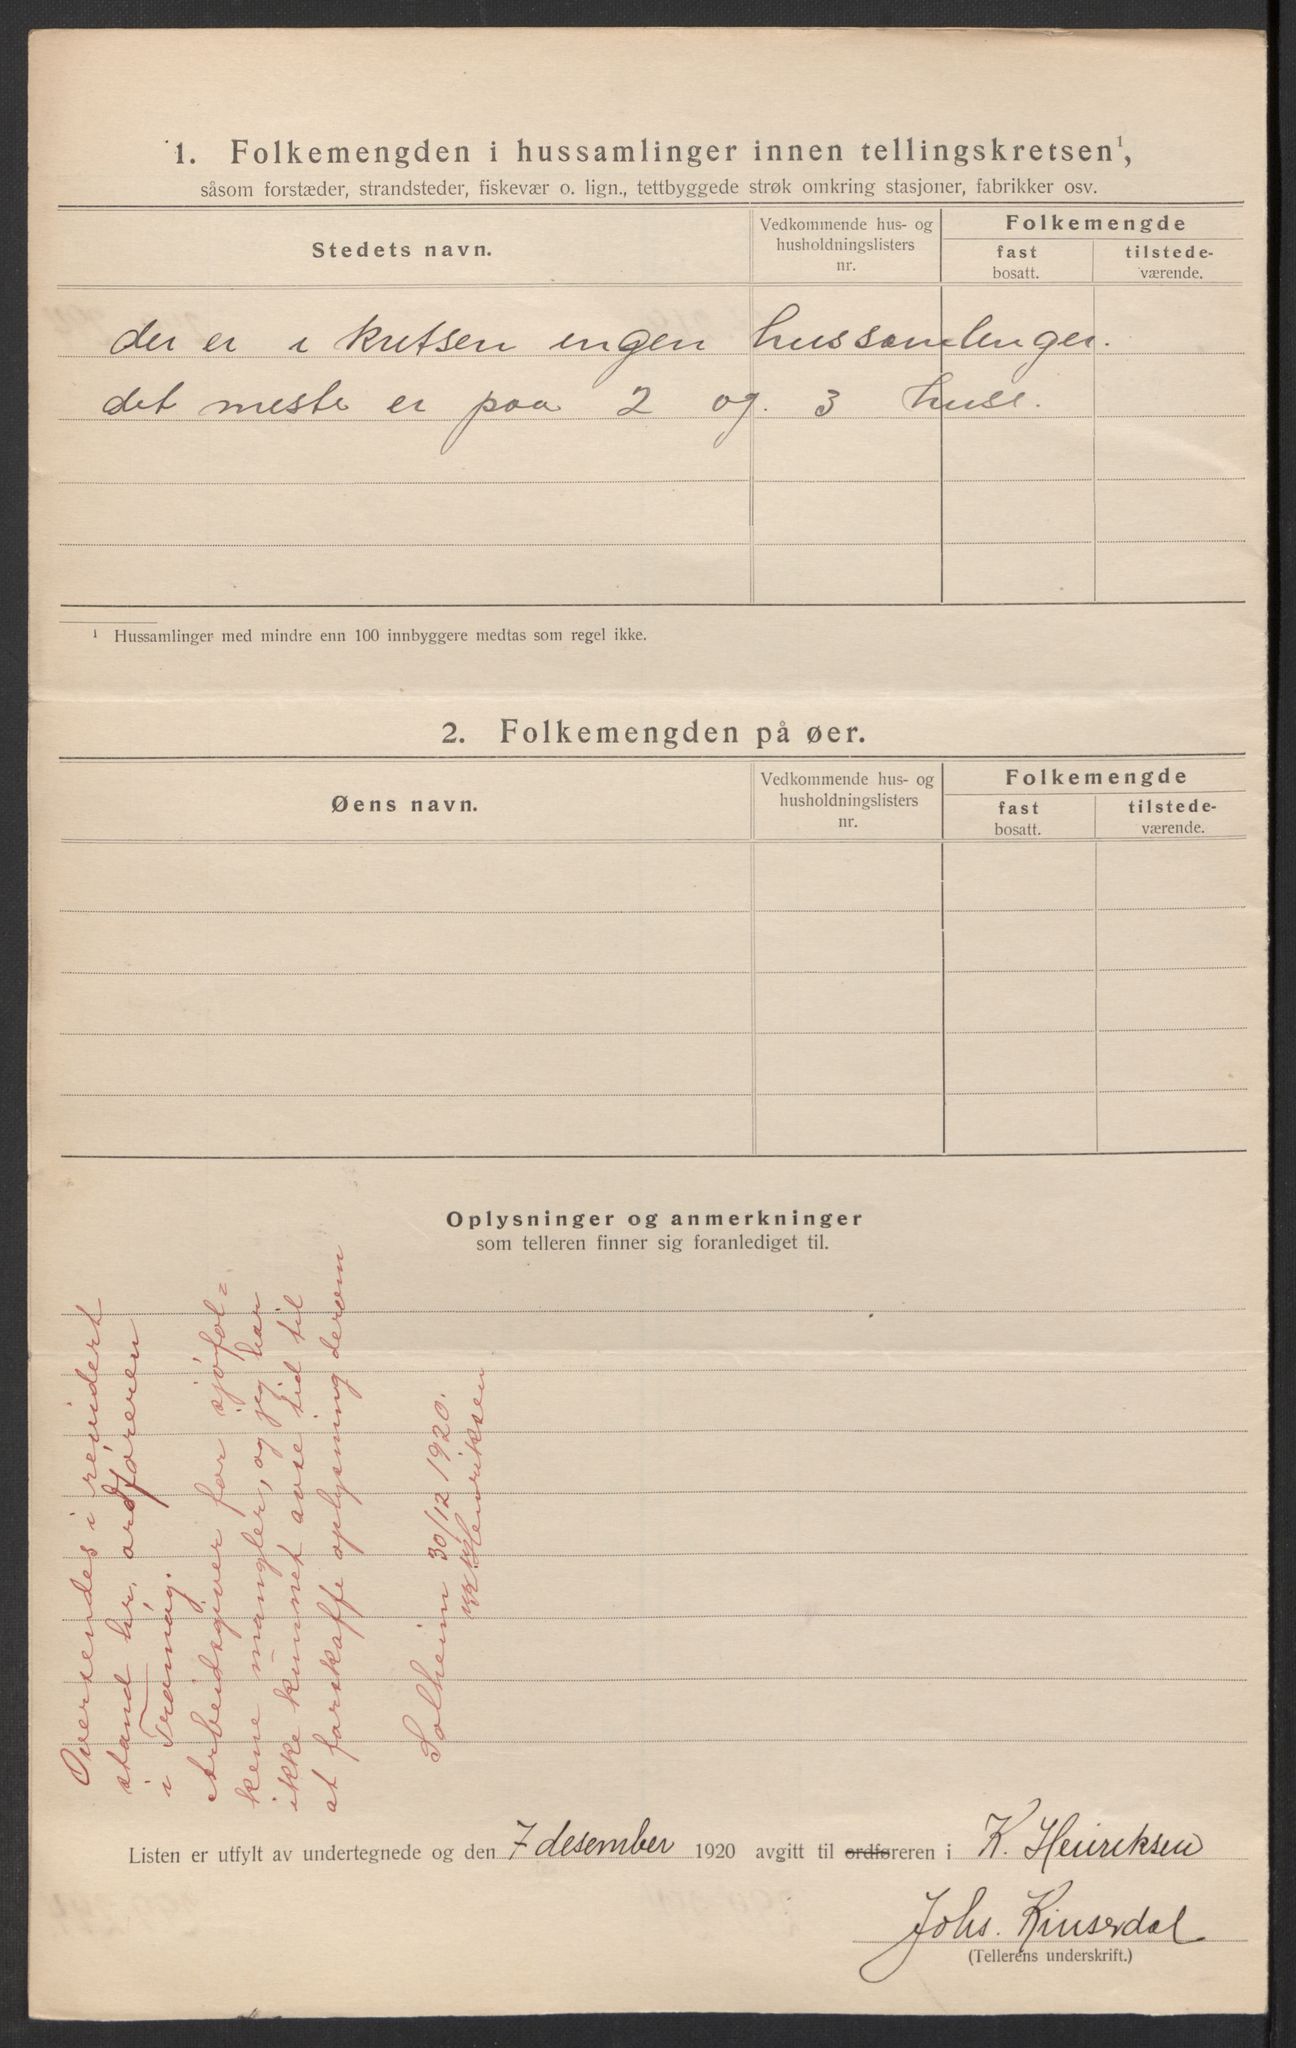 1. Folkemengden i hussamlinger innen tellingskretsen¹,
såsom forstæder, strandsteder, fiskevær o. lign., tettbyggede strøk omkring stasjoner, fabrikker osv.
Stedets navn.
Vedkommende hus- og
husholdningslisters
nr.
Folkemengde
fast
bosatt.
tilstede-
værende.
der er i kretsen ingen hussamlinger.
det meste er paa 2 og. 3 huse.
¹ Hussamlinger med mindre enn 100 innbyggere medtas som regel ikke.
2. Folkemengden på øer.
Øens navn.
Vedkommende hus- og
husholdningslisters
nr.
Folkemengde
fast
bosatt.
tilstede-
værende.
Oplysninger og anmerkninger
som telleren finner sig foranlediget til.
Oversendes i revidert
stand hr. ordføreren
i Tromøy.
Arbeidsgiver for sjøfol=
kene mangler, og jeg har
ikke kunnet avse tid til
at forskaffe oplysning derom
Solheim 30/12 1920.
K. Henriksen
Listen er utfylt av undertegnede og den 7 desember 1920 avgitt til ordføreren i K. Henriksen
Johs. Kinserdal
(Tellerens underskrift.)